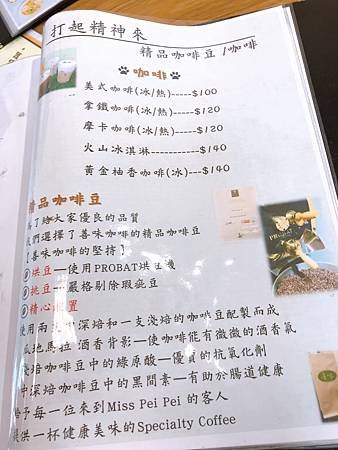 打起精神來
精品咖啡豆/咖啡
咖啡
美式咖啡(冰/熱)-----$100
拿鐵咖啡(冰/熱)---$120
摩卡咖啡(冰/熱)---$120
火山冰淇淋----------$140
黃金柚香咖啡(冰)---$140
精品咖啡豆
為了給大家優良的品質
我們選擇了善味咖啡的精品咖啡豆
【善味咖啡的堅持】
烘豆—使用PROBAT烘豆機
挑豆—嚴格剔除瑕疵豆
精心配置
使用兩支中深焙和一支淺焙的咖啡豆配製而成
瓜地馬拉酒香背影—使咖啡能有微微的酒香氣
淺焙咖啡豆中的綠原酸—優質的抗氧化劑
中深焙咖啡豆中的黑間素—有助於腸道健康
給予每一位來到Miss Pei Pei 的客人
提供一杯健康美味的Specialty Coffee